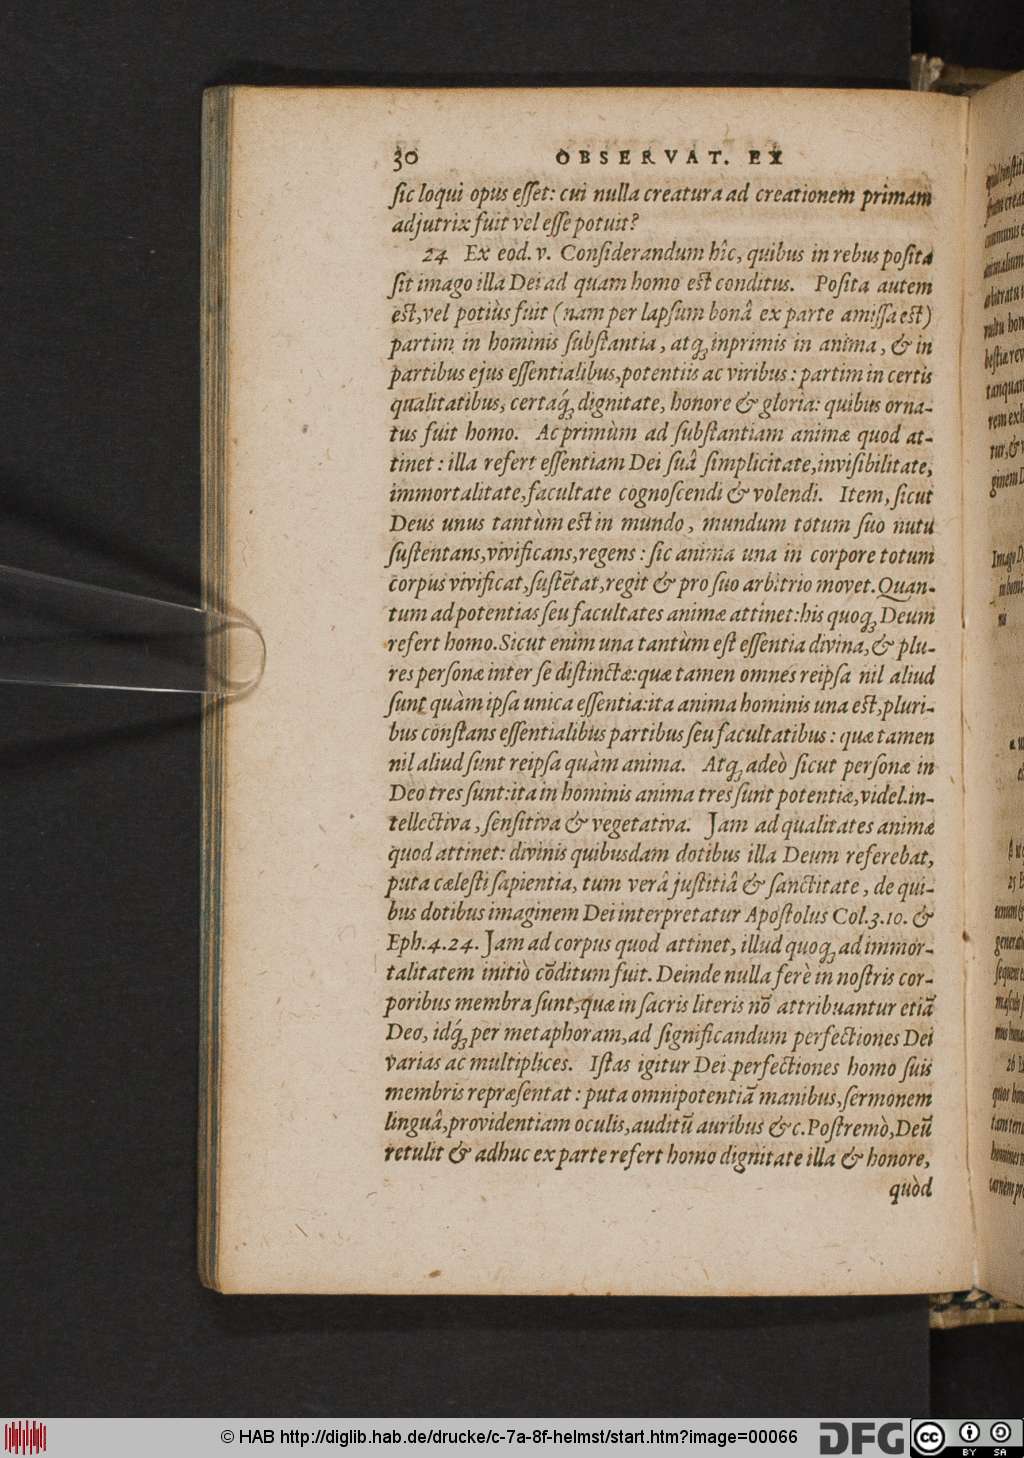 30 OBSERVAT. EX
sic loqui opus esset: cui nulla creatura ad creationem primam
adjutrix fuit vel esse potuit?
24 Ex eod. v. Considerandum hîc, quibus in rebus posita
sit imago illa Dei ad quam homo est conditus. Posita autem
est, vel potiùs fuit (nam per lapsum bonâ ex parte amissa est)
partim in hominis substantia, atq; inprimis in anima, & in
partibus ejus essentialibus, potentiis ac viribus: partim in certis
qualitatibus, certáq; dignitate, honore & gloria: quibus orna-
tus fuit homo. Ac primùm ad substantiam animæ quod at-
tinet: illa refert essentiam Dei suâ simplicitate, invisibilitate,
immortalitate, facultate cognoscendi & volendi. Item, sicut
Deus unus tantùm est in mundo, mundum totum suo nutu
sustentans, vivificans, regens: sic anima una in corpore totum
corpus vivificat, sustētat, regit & pro suo arbitrio movet. Quan-
tum ad potentias seu facultates animæ attinet: his quoq; Deum
refert homo. Sicut enim una tantùm est essentia divina, & plu-
res personæ inter se distinctæ: quæ tamen omnes reipsa nil aliud
sunt quàm ipsa unica essentia: ita anima hominis una est, pluri-
bus constans essentialibus partibus seu facultatibus: quæ tamen
nil aliud sunt reipsa quàm anima. Atq; adeò sicut personæ in
Deo tres sunt: ita in hominis anima tres sunt potentiæ, videl. in-
tellectiva, sensitiva & vegetativa. Jam ad qualitates animæ
quod attinet: divinis quibusdam dotibus illa Deum referebat,
puta cælesti sapientia, tum verâ justitiâ & sanctitate, de qui-
bus dotibus imaginem Dei interpretatur Apostolus Col. 3. 10. &
Eph. 4. 24. Jam ad corpus quod attinet, illud quoq; ad immor-
talitatem initiò cōditum fuit. Deinde nulla ferè in nostris cor-
poribus membra sunt, quæ in sacris literis nō attribuantur etiā
Deo, idq́; per metaphoram, ad significandum perfectiones Dei
varias ac multiplices. Istas igitur Dei perfectiones homo suis
membris repræsentat: puta omnipotentiā manibus, sermonem
linguâ, providentiam oculis, auditū auribus &c. Postremò, Deū
retulit & adhuc ex parte refert homo dignitate illa & honore,
quòd
© HAB http://diglib.hab.de/drucke/c-7a-8f-helmst/start.htm?image=00066
DFG
cc BY SA